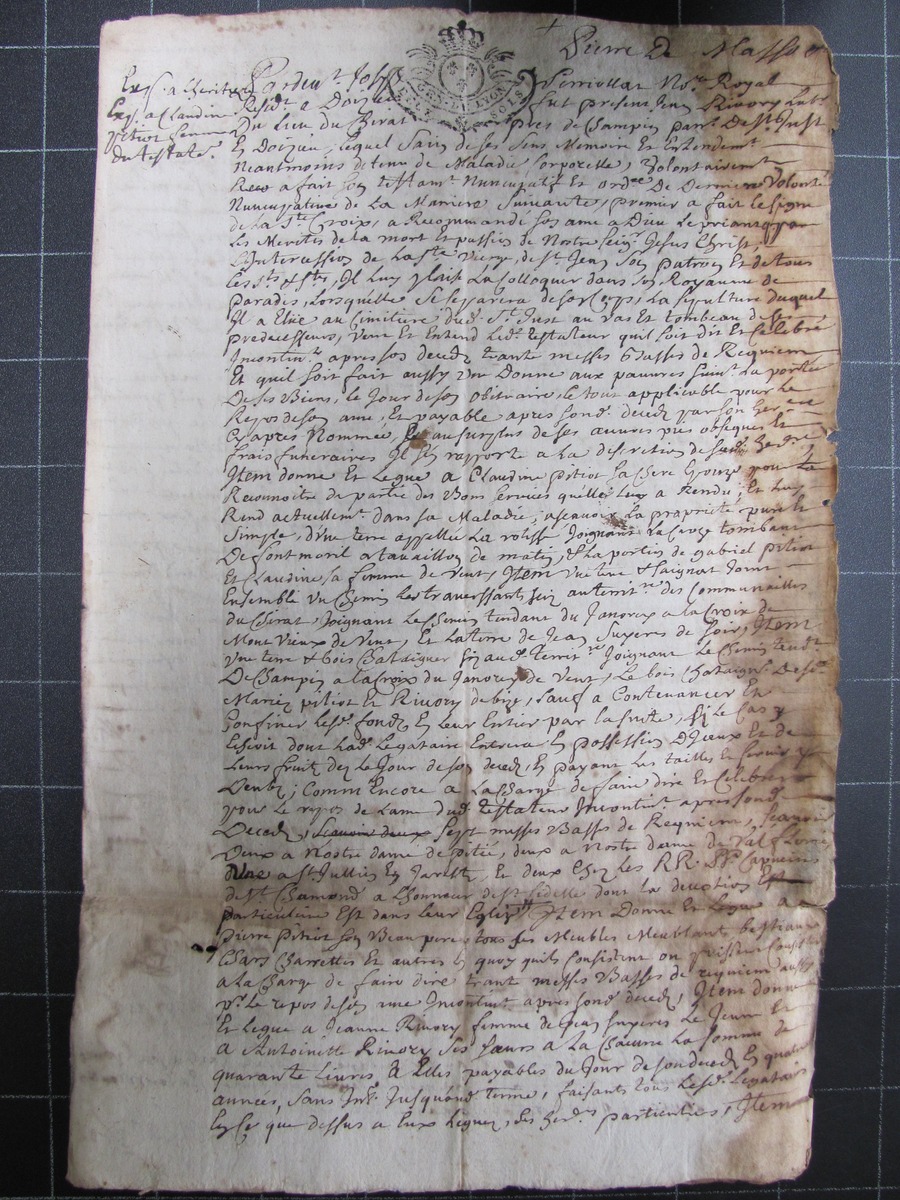 + Pierre De Masso
Exp. a lheritier
Exp. a Claudine
Pitiot femme
du testateur
Pardevt Joseph Perriollat Nore Royal
GEN. DE LYON
SOLS
Residt a Doizieu fut present Jean Rivory Labr
Du Lieu du Breat pres de Champin parr De St Just
En Doizieu, lequel Sain de ses Sens Memoire Et Entendemt
Neantmoins detenu de Maladie Corporelle, Volontairemt
a fait son testamt Nuncupatif Et ordce De Derniere Volonté
Nuncupative de La Maniere Suivante, premier a fait le signe
de la Ste Croix, a Recommandé son ame a Dieu Le priant par
Les Merites de la mort et passion de Nostre Seigr Jesus Christ,
L'Intercession de La ste Vierge, de st Jean Son patron Et de tous
Les sts & stes, Il Luy plaise La Colloquer dans son Royaume de
paradis, Lorsquelle se separera de son Corps, La sepulture duquel
Il a Elüe au Cimitiere dud. St Just au Vas Et tombeau de ses
predecesseurs, Veut Et Entend Led. testateur quil soit dit Et Celebré
Incontint apres son deced trante messes Basses de Requiem
Et quil soit fait aussy Une Donne aux pauvres suivt La portée
De ses Biens, Le Jour de son obituaire, Le tout applicable pour le
Repos de son ame, Et payable apres sond. deced par son here
Cy apres Nommée, Et au surplus de ses œuvres pies obseques Et
frais funeraires Il s'en rapporte a La discretion de sond. here
Item donne Et Legue a Claudine Pitiot sa chere Epouze pour La
Reconnoitre de partie des Bons services quelle Luy a Rendu, Et Luy
Rend actuellemt dans sa Maladie, ascavoir La proprieté pure Et
Simple, d'une terre appellée La Joignant La Croix tombant
De font moril a tavaillon de matin, & La portion de gabriel Pitiot
Et Claudine sa femme de Vent, Item Une terre & saignat Joint
Ensemble Un Chemin Les traverssant, sis au territre des Communailles
du Breat, Joignant Le Chemin tendant du Janorey a La Croix de
Mont Vieux de Vent, Et La terre de Jean Juyeres de soir, Item
Une terre & bois Chataigner sis aud. territre Joignant Le Chemin tendt
De Champin a La Croix du Janorey de Vent, Le bois Chataigner De sr
Mariez Pitiot Et Rivory de bize, sauf a Contenancer Et
Confiner Lesd. fonds En Leur Entier par La suite, si Le Cas y
Echeoit dont Lad. Legataire Entrera En possession D'Iceux Et de
Leurs fruits dez Le Jour de son deced, En payant Les tailles Et servis y
Deubs; Comm Encore a La Charge de faire dire Et Celebrer
pour le repos de Lame dud. testateur Incontint apres sond.
Deced, sept messes Basses de Requiem, scavoir
Deux a Nostre dame de pitié, deux a Nostre dame de Val fleurie
Une a St Jullien En Jarest, Et deux Chez Les RR. PP. Capucins
de St Chamond a L'honneur de st fidelle dont La devotion Est
particuliere Est dans Leur Eglise, Item Donne Et Legue a
Pierre Pitiot son Beau pere tous ses Meubles Meublants bestiaux
Chars Charrettes Et autres En quoy quils Consistent ou puissent Consister
a La Charge de faire dire trante messes Basses de requiem aussy
pr Le repos de son ame Incontint apres sond. deced, Item donne
Et Legue a Jeanne Rivory femme de Jean Juyeres Le Jeune Et
a Antoinette Rivory ses sœurs a La Chacune La somme de
quarante Livres a Elles payables du Jour de son deced En quatre
années, sans Int. Jusquaud. terme, faisants tous Lesd. Legataires
En Ce que dessus a Eux Legué, ses hers particuliers, Item